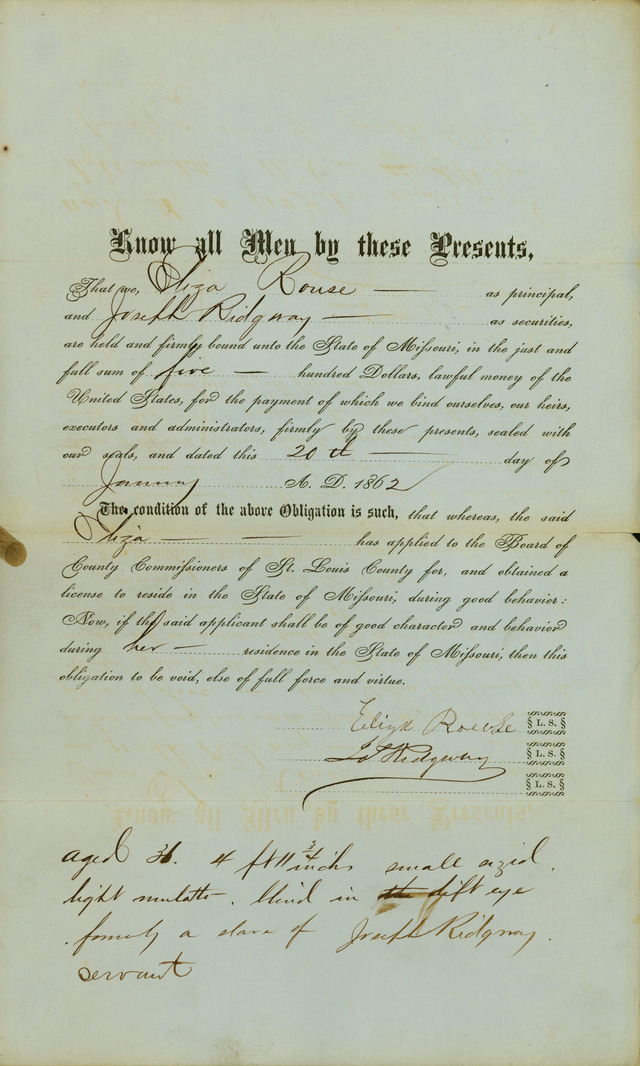 Know all Men by these Presents,
That we, Eliza Rouse — as principal,
and Joseph Ridgway — as securities,
are held and firmly bound unto the State of Missouri, in the just and
full sum of five — hundred Dollars, lawful money of the
United States, for the payment of which we bind ourselves, our heirs,
executors and administrators, firmly by these presents, sealed with
our seals, and dated this 20th — day of
January A. D. 1862
The condition of the above Obligation is such, that whereas, the said
Eliza — — has applied to the Board of
County Commissioners of St. Louis County for, and obtained a
license to reside in the State of Missouri, during good behavior:
Now, if the said applicant shall be of good character and behavior
during her — residence in the State of Missouri, then this
obligation to be void, else of full force and virtue.
Eliza Rouse L. S.
Jos Ridgway L. S.
L. S.
aged 36. 4 ft 11 3/4 inchs small sized.
light mulatto. blind in left eye
formerly a slave of Joseph Ridgway.
servant